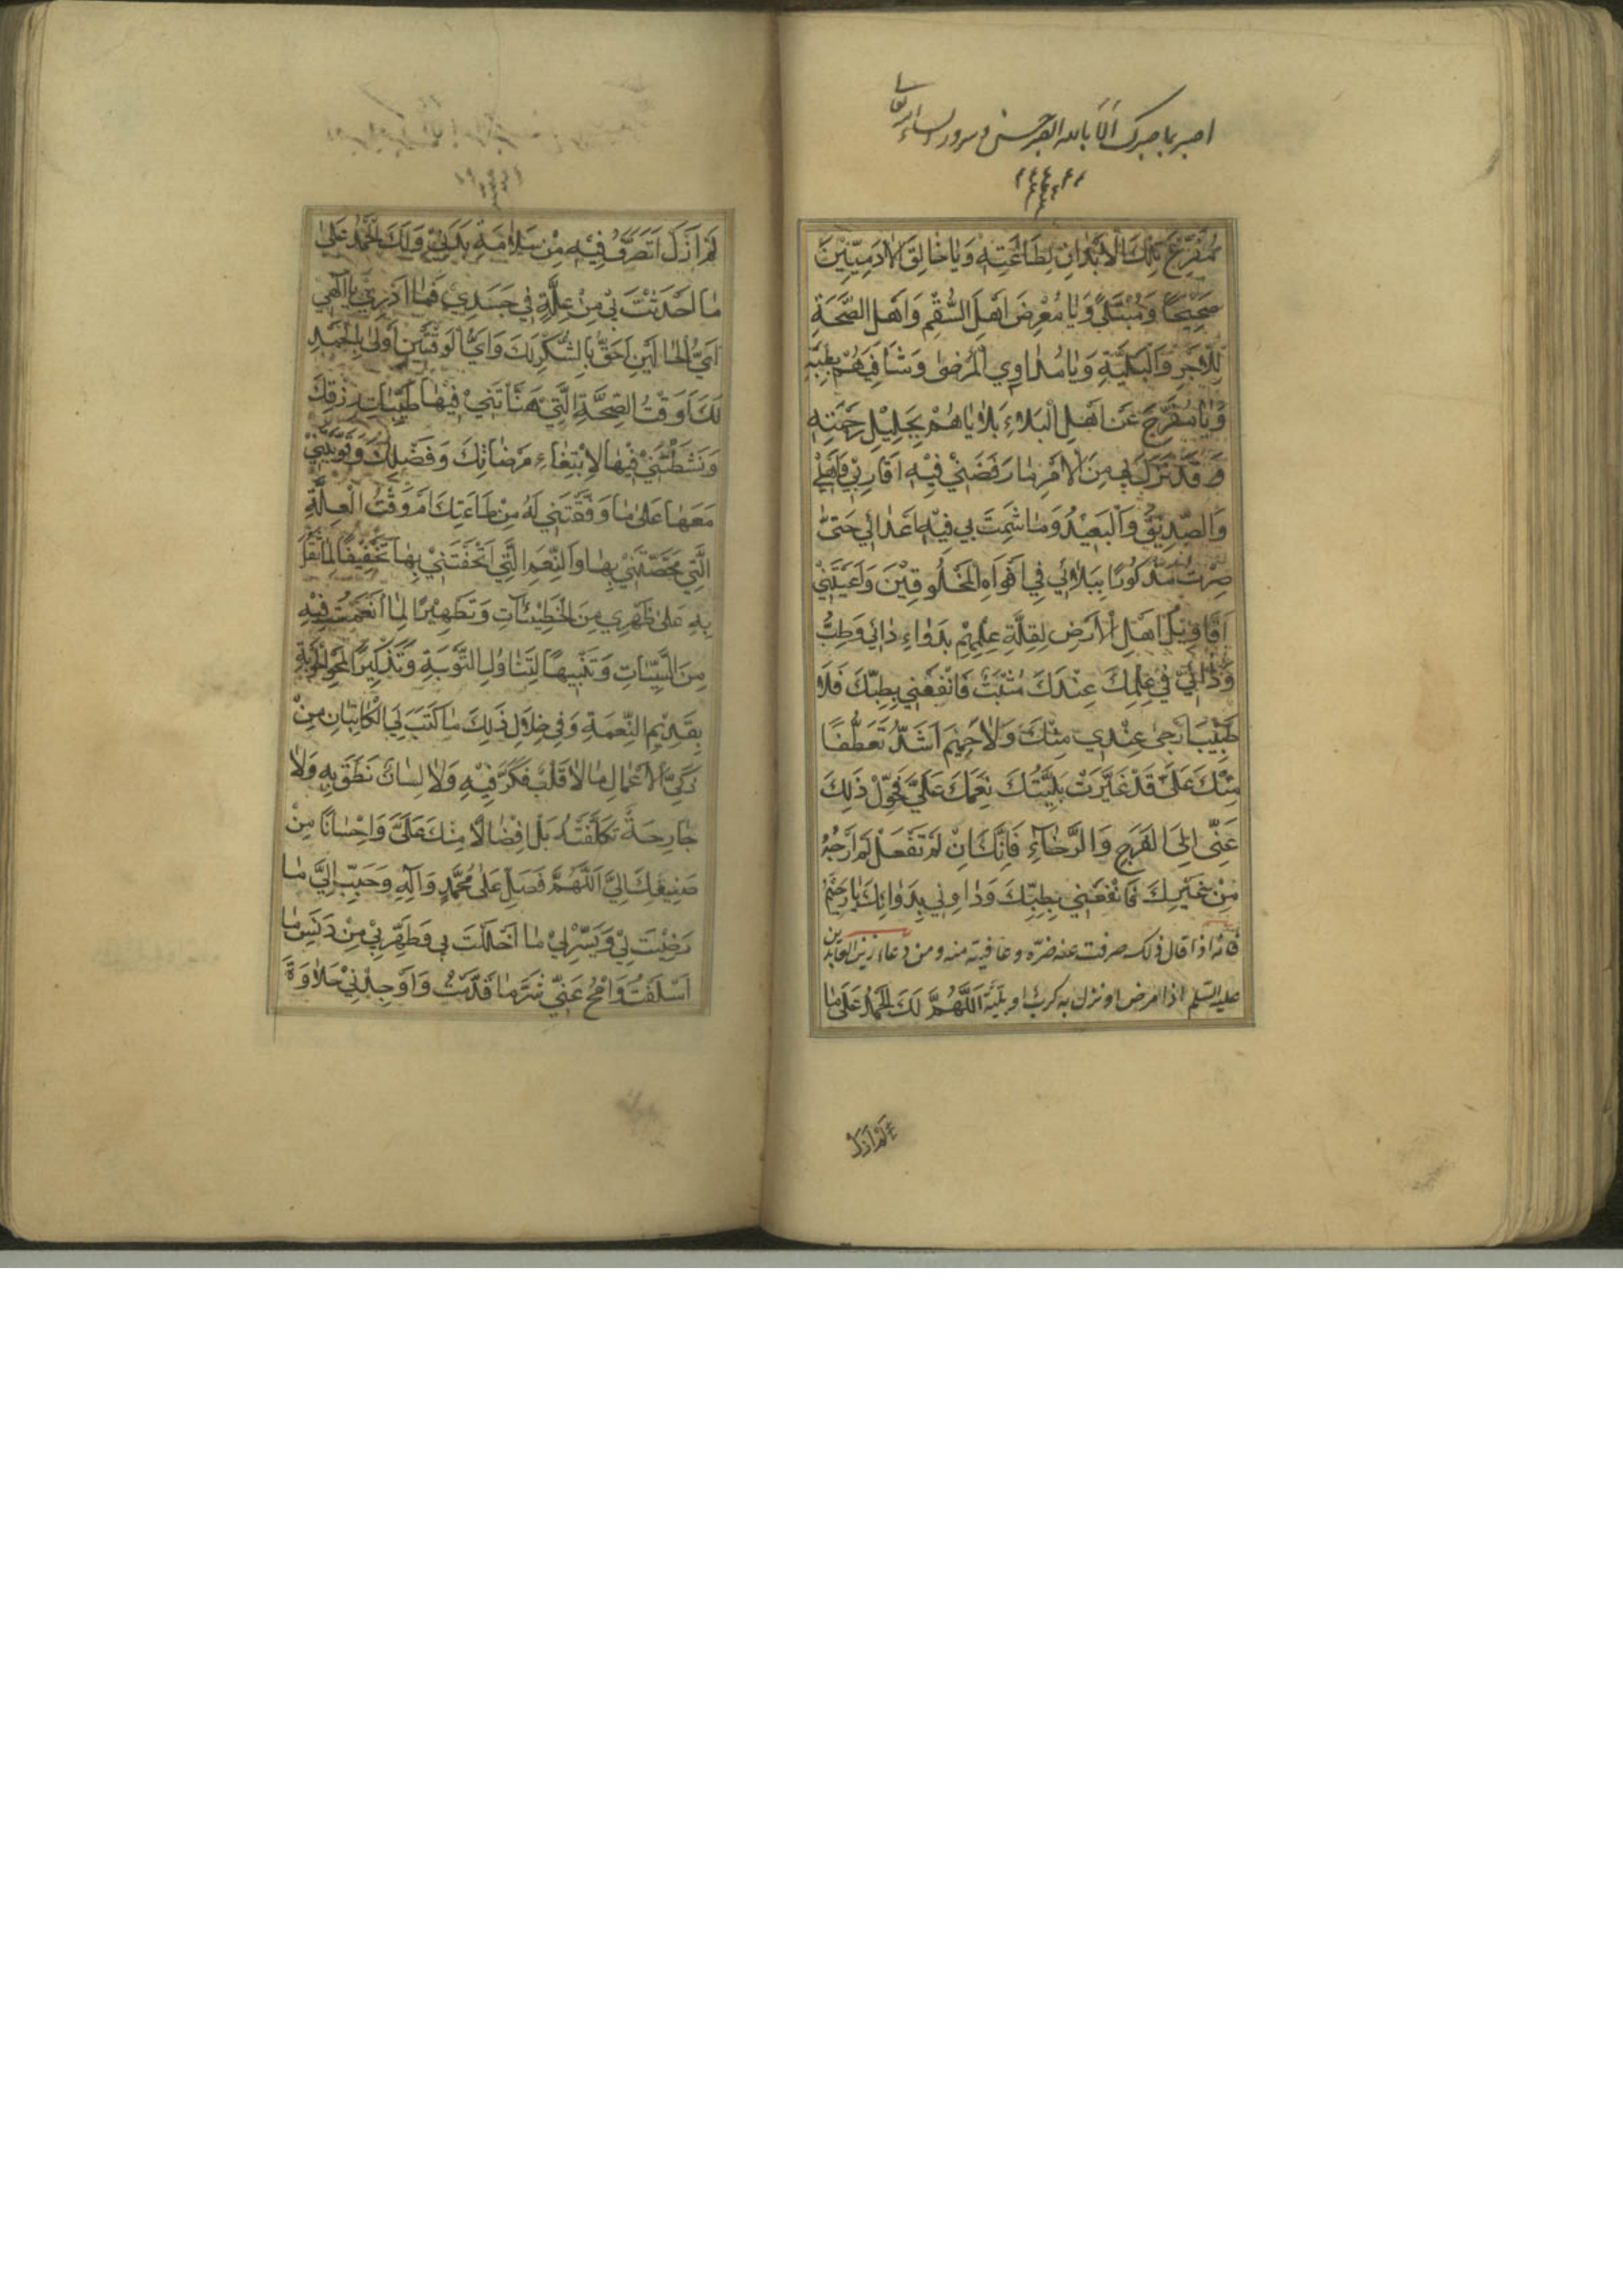 اصبر بما صبرك
مُفَرِّغَ تِلْكَ الْاَبْدَانِ لِطَاعَتِهٖ وَيَا خَالِقَ الْاٰدَمِيّٖينَ
صَحِيحًا وَمُبْتَلًى وَيَا مُعْرِضَ اَهْلِ السُّقْمِ وَاَهْلِ الصِّحَّةِ
لِلْاَجْرِ وَالْبَلِيَّةِ وَيَا مُدَاوِي الْمَرْضٰى وَشَافِيَهُمْ بِطِبِّهِ
وَيَا مُفَرِّجَ عَنْ اَهْلِ الْبَلَاءِ بَلَايَاهُمْ بِجَلِيلِ رَحْمَتِهٖ
وَقَدْ نَزَلَ بِي مِنَ الْاَمْرِ مَا رَفَضَنِي فِيهِ اَقَارِبِي وَاَهْلِي
وَالصَّدِيقُ وَالْبَعِيدُ وَمَا شَمِتَ بِي فِيهِ اَعْدَائِي حَتّٰى
صِرْتُ مَذْكُورًا بِبَلَائِي فِي اَفْوَاهِ الْمَخْلُوقِينَ وَاَعْيَتْنِي
اَقَاوِيلُ اَهْلِ الْاَرْضِ لِقِلَّةِ عِلْمِهِمْ بِدَوَاءِ دَائِي وَطِبُّ
دَائِي فِي عِلْمِكَ عِنْدَكَ مُثْبَتٌ فَانْفَعْنِي بِطِبِّكَ فَلَا
طَبِيبَ اَرْجٰى عِنْدِي مِنْكَ وَلَا حَمِيمَ اَشَدُّ تَعَطُّفًا
مِنْكَ عَلَيَّ قَدْ غَيَّرَتْ بَلِيَّتُكَ نِعَمَكَ عَلَيَّ فَحَوِّلْ ذٰلِكَ
عَنِّي اِلَى الْفَرَجِ وَالرَّخَاءِ فَاِنَّكَ اِنْ لَمْ تَفْعَلْ لَمْ اَرْجُهُ
مِنْ غَيْرِكَ فَانْفَعْنِي بِطِبِّكَ وَدَاوِنِي بِدَوَائِكَ يَا رَحِيمُ
فانه اذا قال ذلك صرفت عنه ضرّه وعافيته منه ومن دعاء زين العابدين
عليه السلم اذا مرض او نزل به كرب او بليّة اَللّٰهُمَّ لَكَ الْحَمْدُ عَلٰى مَا
لَمْ اَزَلْ
لَمْ اَزَلْ اَتَصَرَّفُ فِيهِ مِنْ سَلَامَةِ بَدَنِي وَلَكَ الْحَمْدُ عَلٰى
مَا اَحْدَثْتَ بِي مِنْ عِلَّةٍ فِي جَسَدِي فَمَا اَدْرِي يَا اِلٰهِي
اَيُّ الْحَالَيْنِ اَحَقُّ بِالشُّكْرِ لَكَ وَاَيُّ الْوَقْتَيْنِ اَوْلٰى بِالْحَمْدِ
لَكَ اَوَقْتُ الصِّحَّةِ الَّتِي هَنَّاْتَنِي فِيهَا طَيِّبَاتِ رِزْقِكَ
وَنَشَّطْتَنِي فِيهَا لِابْتِغَاءِ مَرْضَاتِكَ وَفَضْلِكَ وَقَوَّيْتَنِي
مَعَهَا عَلٰى مَا وَفَّقْتَنِي لَهُ مِنْ طَاعَتِكَ اَمْ وَقْتُ الْعِلَّةِ
الَّتِي مَحَّصْتَنِي بِهَا وَالنِّعَمِ الَّتِي اَتْحَفْتَنِي بِهَا تَخْفِيفًا لِمَا ثَقُلَ
بِهِ عَلٰى ظَهْرِي مِنَ الْخَطِيئَاتِ وَتَطْهِيرًا لِمَا انْغَمَسْتُ فِيهِ
مِنَ السَّيِّئَاتِ وَتَنْبِيهًا لِتَنَاوُلِ التَّوْبَةِ وَتَذْكِيرًا لِمَحْوِ الْحَوْبَةِ
بِقَدِيمِ النِّعْمَةِ وَفِي خِلَالِ ذٰلِكَ مَا كَتَبَ لِيَ الْكَاتِبَانِ مِنْ
زَكِيِّ الْاَعْمَالِ مَا لَا قَلْبٌ فَكَّرَ فِيهِ وَلَا لِسَانٌ نَطَقَ بِهِ وَلَا
جَارِحَةٌ تَكَلَّفَتْهُ بَلْ اِفْضَالًا مِنْكَ عَلَيَّ وَاِحْسَانًا مِنْ
صَنِيعِكَ اِلَيَّ اَللّٰهُمَّ فَصَلِّ عَلٰى مُحَمَّدٍ وَاٰلِهِ وَحَبِّبْ اِلَيَّ مَا
رَضِيتَ لِي وَيَسِّرْ لِي مَا اَحْلَلْتَ بِي وَطَهِّرْنِي مِنْ دَنَسِ مَا
اَسْلَفْتُ وَامْحُ عَنِّي شَرَّ مَا قَدَّمْتُ وَاَوْجِدْنِي حَلَاوَةَ